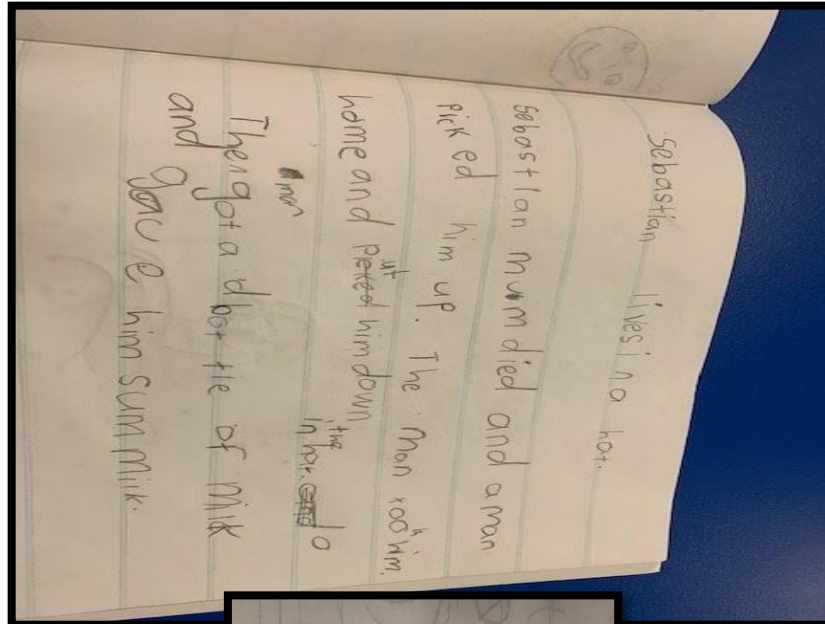 Sebastian lives in a hat.
Sebastian mum died and a man
picked him up. The man took him.
home and put him down
in the hat.
Then got a bottle of milk
and gave him sum milk.